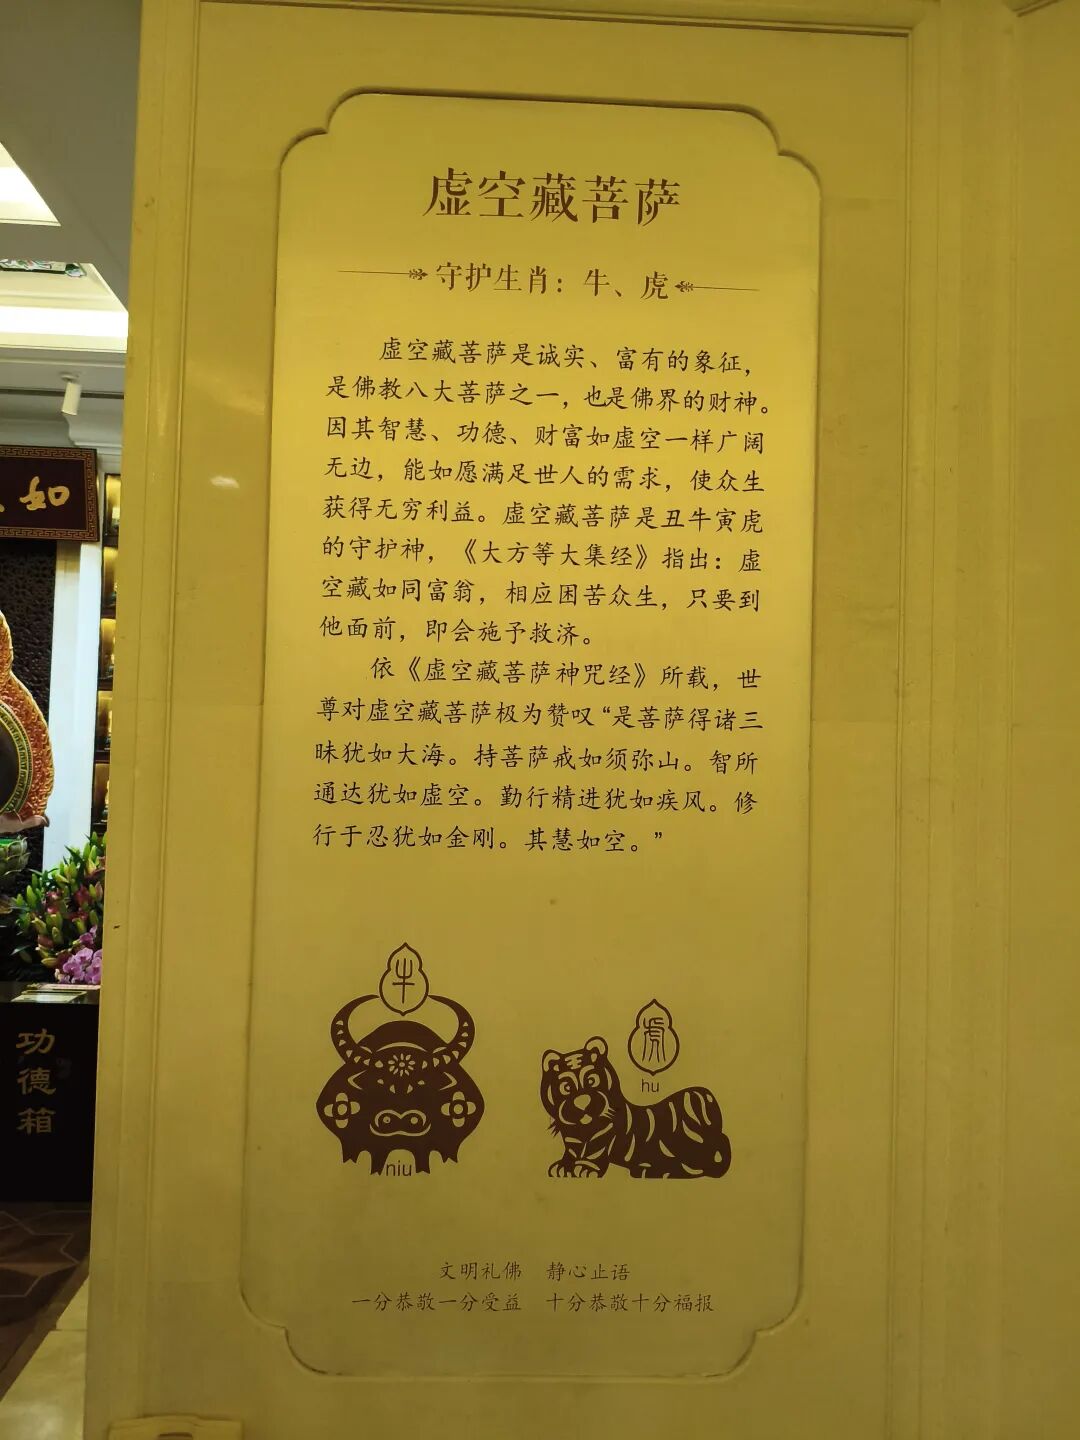 虚空藏菩萨
守护生肖：牛、虎
虚空藏菩萨是诚实、富有的象征，
是佛教八大菩萨之一，也是佛界的财神。
因其智慧、功德、财富如虚空一样广阔
无边，能如愿满足世人的需求，使众生
获得无穷利益。虚空藏菩萨是丑牛寅虎
的守护神，《大方等大集经》指出：虚
空藏如同富翁，相应困苦众生，只要到
他面前，即会施予救济。
依《虚空藏菩萨神咒经》所载，世
尊对虚空藏菩萨极为赞叹“是菩萨得诸三
昧犹如大海。持菩萨戒如须弥山。智所
通达犹如虚空。勤行精进犹如疾风。修
行于忍犹如金刚。其慧如空。”
牛
niu
虎
hu
文明礼佛 静心止语
一分恭敬一分受益 十分恭敬十分福报
如
功德箱